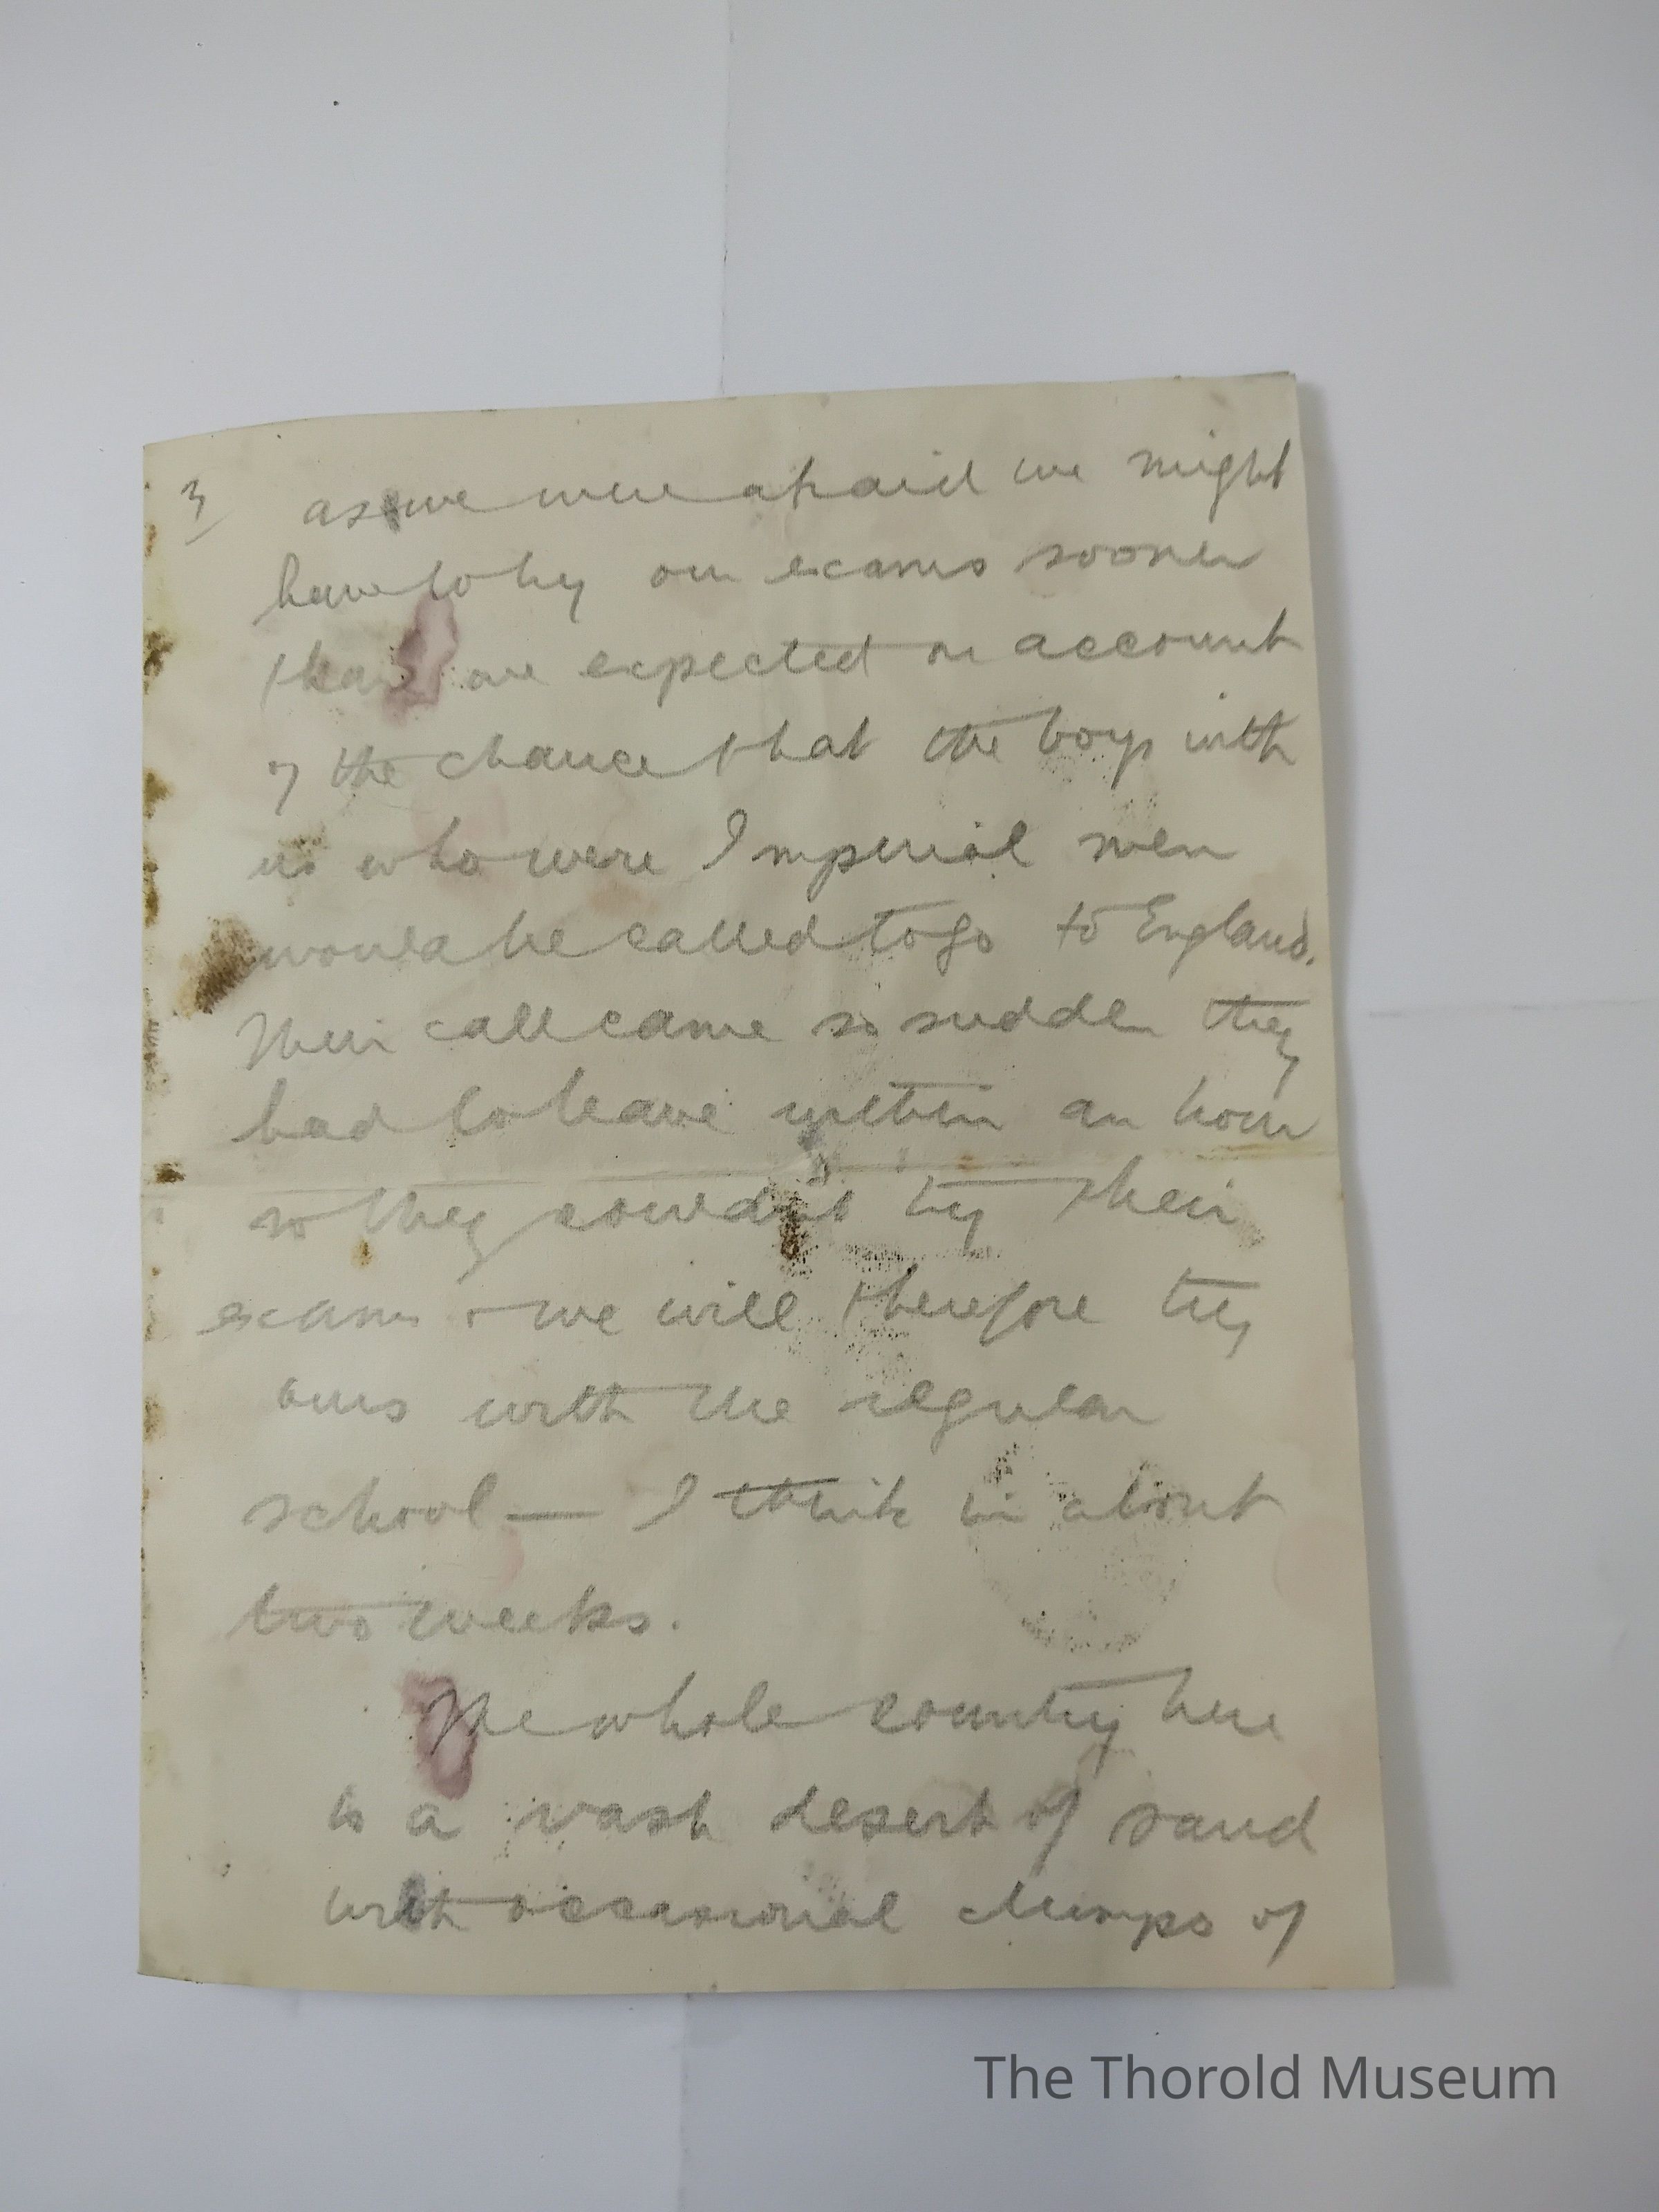 3 as we were afraid we might
have to try our exams sooner
than we expected on account
of the chance that the boys with
us who were Imperial men
would be called to go to England.
Their call came so sudden they
had to leave within an hour
so they couldn't try their
exams & we will therefore try
ours with the regular
school — I think in about
two weeks.
The whole country here
is a vast desert of sand
with occasional clumps of
The Thorold Museum